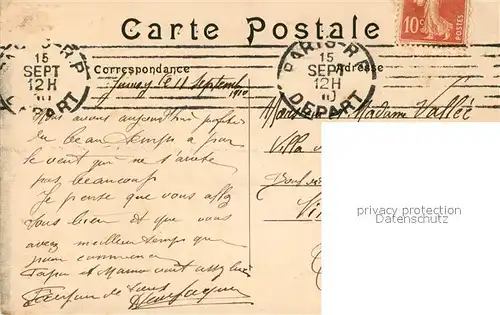 Carte Postale
10c
PARIS-R.P
15
SEPT
12H
10
DÉPART
PARIS-R.P
15
SEPT
12H
10
DÉPART
Correspondance
Adresse
le 11 Septembre
1910
Nous avons aujourd'hui profité
du beau temps a part
le vent qui ne s'arrête
pas beaucoup
Je pense que vous allez
tous bien et que vous
avez meilleur temps que
pour commencer
Papa et Maman vont assez bien
Madame Vallée
Villa
privacy protection
Datenschutz